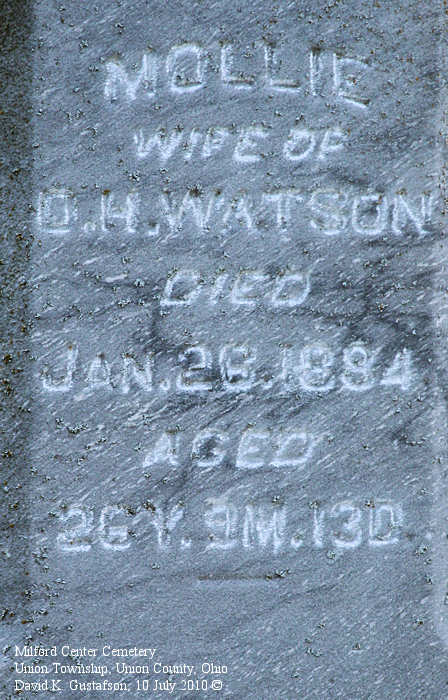 MOLLIE
WIFE OF
D.H. WATSON
DIED
JAN. 26. 1884
AGED
26Y. 9M. 13D
Milford Center Cemetery
Union Township, Union County, Ohio
David K. Gustafson; 10 July 2010 ©